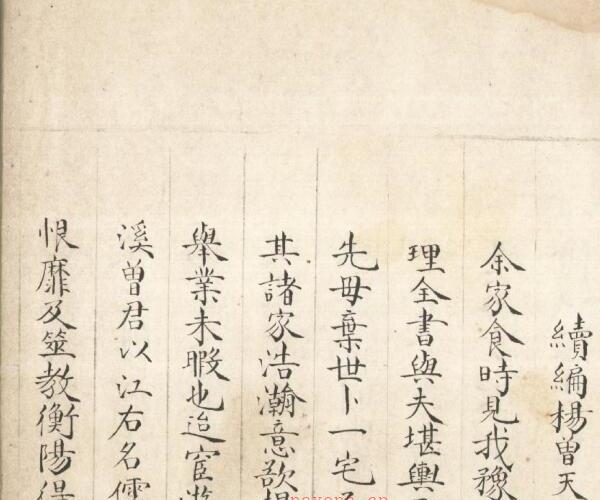 續編楊曾天
余家食時見我豫
理全書與夫堪輿
先毋棄世卜一宅
其諸家浩瀚意欲
舉業未暇也迨宦遊
溪曾君以江右名儒
恨靡及筮教衡陽得